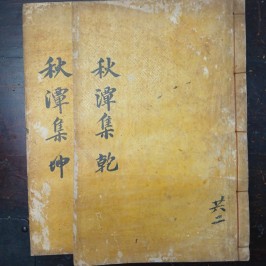 秋潭集 乾
共二
秋潭集 坤